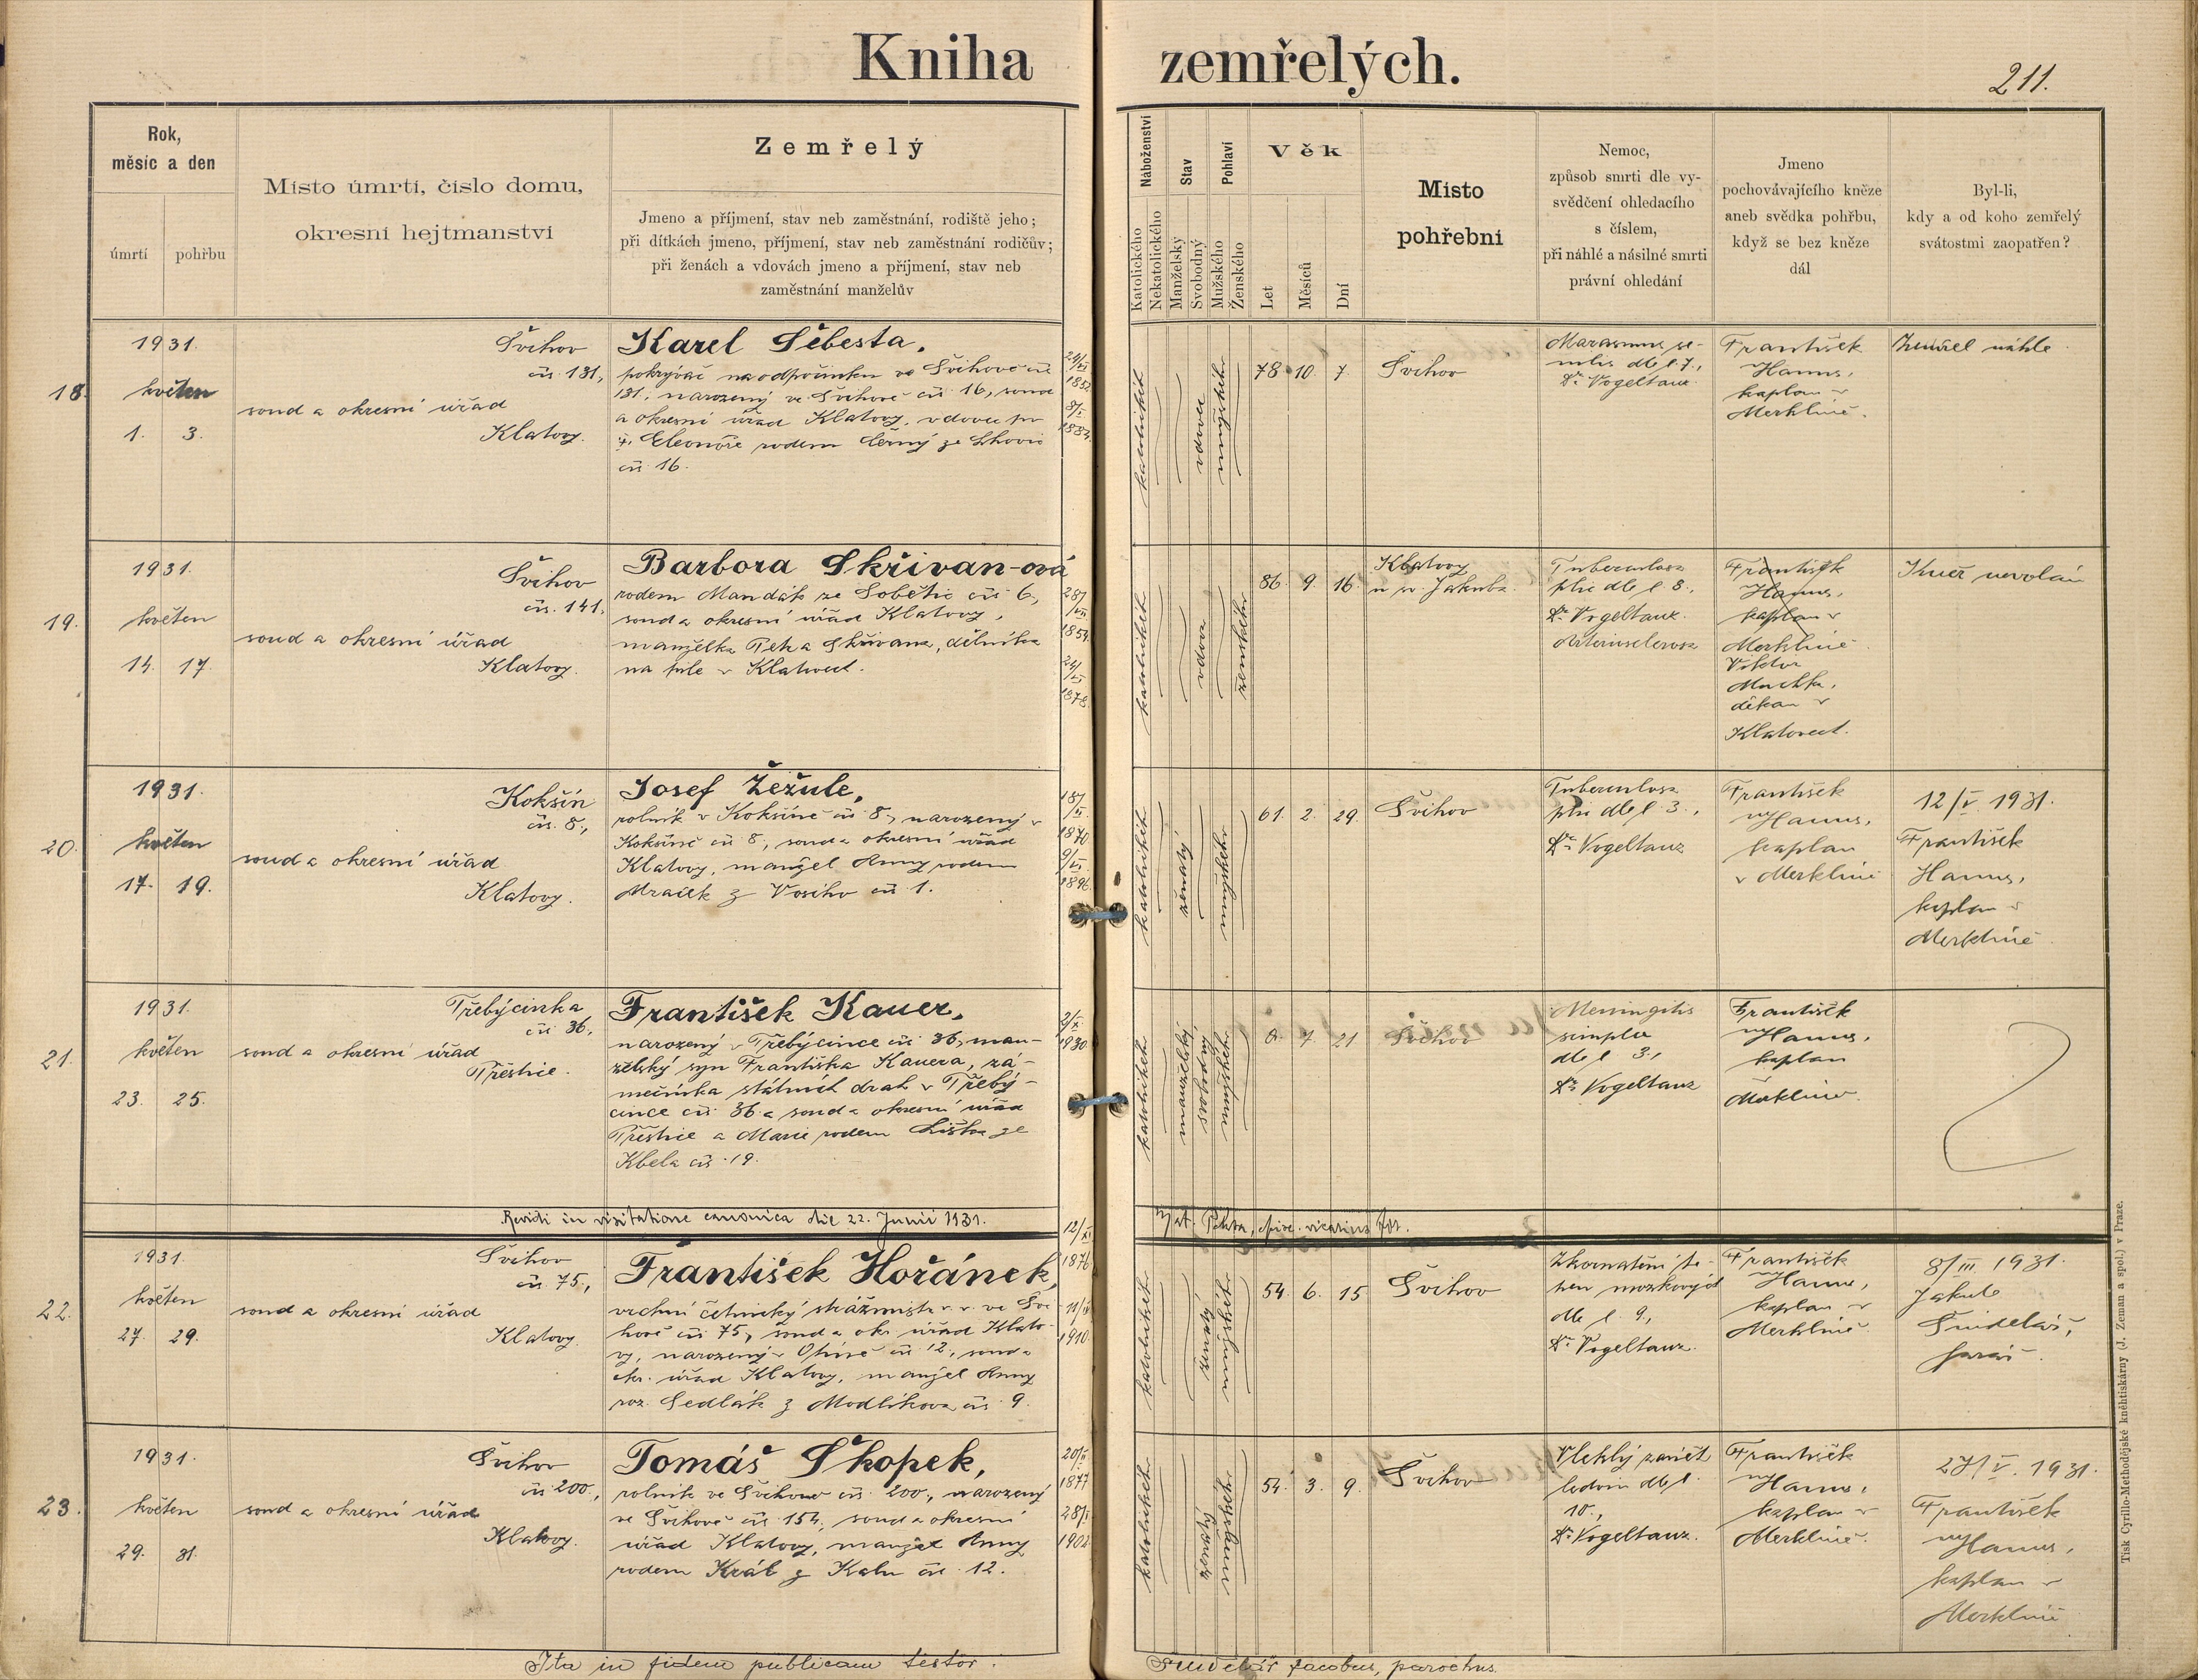 Kniha zemřelých.
211.
Rok,
měsíc a den
úmrtí
pohřbu
Místo úmrtí, číslo domu,
okresní hejtmanství
Zemřelý
Jmeno a příjmení, stav neb zaměstnání, rodiště jeho;
při dítkách jmeno, příjmení, stav neb zaměstnání rodičův;
při ženách a vdovách jmeno a příjmení, stav neb
zaměstnání manželův
Náboženství
Katolického
Nekatolického
Stav
Manželský
Svobodný
Pohlaví
Mužského
Ženského
Věk
Let
Měsíců
Dní
Místo
pohřební
Nemoc,
způsob smrti dle vy-
svědčení ohledacího
s číslem,
při náhlé a násilné smrti
právní ohledání
Jmeno
pochovávajícího kněze
aneb svědka pohřbu,
když se bez kněze
dál
Byl-li,
kdy a od koho zemřelý
svátostmi zaopatřen?
18.
1931.
květen
1. 3.
Švihov
čís. 131,
soud a okresní úřad
Klatovy.
Karel Šebesta,
pokrývač na odpočinku ve Švihově čís
131, narozený ve Švihově čís 16, soud
a okresní úřad Klatovy, vdovec po
Eleonoře rodem Černý ze
čís 16.
katolického
vdovec
mužského
78 10. 7.
Švihov
Marasmus se-
nilis dle l 7.,
Dr. Vogeltanz
František
Hanus,
kaplan v
Merklíně.
Zemřel náhle
19.
1931.
květen
14. 17.
Švihov
čís. 141,
soud a okresní úřad
Klatovy.
Barbora Skřivan-ová
rodem Mandák ze Sobětic čís 6,
soud a okresní úřad Klatovy,
manželka Petra Skřivana, dělníka
na pile v Klatovech.
28/
VII
1854
24/
1878
katolického
vdova
ženského
86. 9. 16.
Klatovy
u sv. Jakuba.
Tuberculosa
plic dle l 8.,
Dr. Vogeltanz
Arteriosclerosa
František
Hanus,
kaplan v
Merklíně
Viktor
děkan v
Klatovech.
Kněz nevolán
20.
1931.
květen
17. 19.
Kokšín
čís. 8,
soud a okresní úřad
Klatovy.
Josef Žežule,
rolník v Kokšíně čís 8, narozený v
Kokšíně čís 8, soud a okresní úřad
Klatovy, manžel Anny rodem
Mraček z Vosího čís 1.
18/
II
1870
9/
1896
katolického
ženatý
mužského
61. 2. 29.
Švihov
Tuberculosa
plic dle l 3.,
Dr. Vogeltanz
František
Hanus,
kaplan
v Merklíně
12/V 1931.
František
Hanus,
kaplan v
Merklíně
21.
1931.
květen
23. 25.
Třebýcinka
čís 36,
soud a okresní úřad
Přeštice.
František Kauer,
narozený v Třebýcince čís 36, man-
želský syn Františka Kauera, zá-
mečníka státních drah v Třebý-
cince čís 36 a soud a okresní úřad
Přeštice a Marie rodem Liška ze
Kbela čís 19.
2/X
1930
katolického
manželský
svobodný
mužského
0. 7. 21
Švihov
Meningitis
simplex
dle l 3.,
Dr. Vogeltanz
František
Hanus,
kaplan
Merklíně.
Revidi in visitatione canonica die 22. Junii 1931.
vicarius for.
22.
1931.
květen
27. 29.
Švihov
čís 75,
soud a okresní úřad
Klatovy.
František Hořánek,
vrchní četnický strážmistr v. v. ve Švi-
hově čís 75, soud a okr. úřad Klato-
vy, narozený v čís 12, soud a
okr. úřad Klatovy, manžel Anny
roz. Sedlák z Modlíkova čís 9.
12/XI
1876
1910
katolického
ženatý
mužského
54. 6. 15.
Švihov
Zkornatění te-
pen mozkových
dle l 9.,
Dr. Vogeltanz.
František
Hanus,
kaplan v
Merklíně
8/III 1931.
Jakub
Šindelář,
farář.
23.
1931.
květen
29. 31.
Švihov
čís 200,
soud a okresní úřad
Klatovy.
Tomáš Skopek,
rolník ve Švihově čís. 200, narozený
ve Švihově čís 154, soud a okresní
úřad Klatovy, manžel Anny
rodem Král z Kalu čís 12.
20/II
1877
28/I
1902
katolického
ženatý
mužského
54. 3. 9.
Švihov
Vleklý zánět
ledvin dle l
10.,
Dr. Vogeltanz.
František
Hanus,
kaplan v
Merklíně.
27/V. 1931.
František
Hanus,
kaplan v
Merklíně
Ita in fidem publicam testor.
Šindelář Jacobus, parochus.
Tisk Cyrillo-Methodějské kněhtiskárny (J. Zeman a spol.) v Praze.